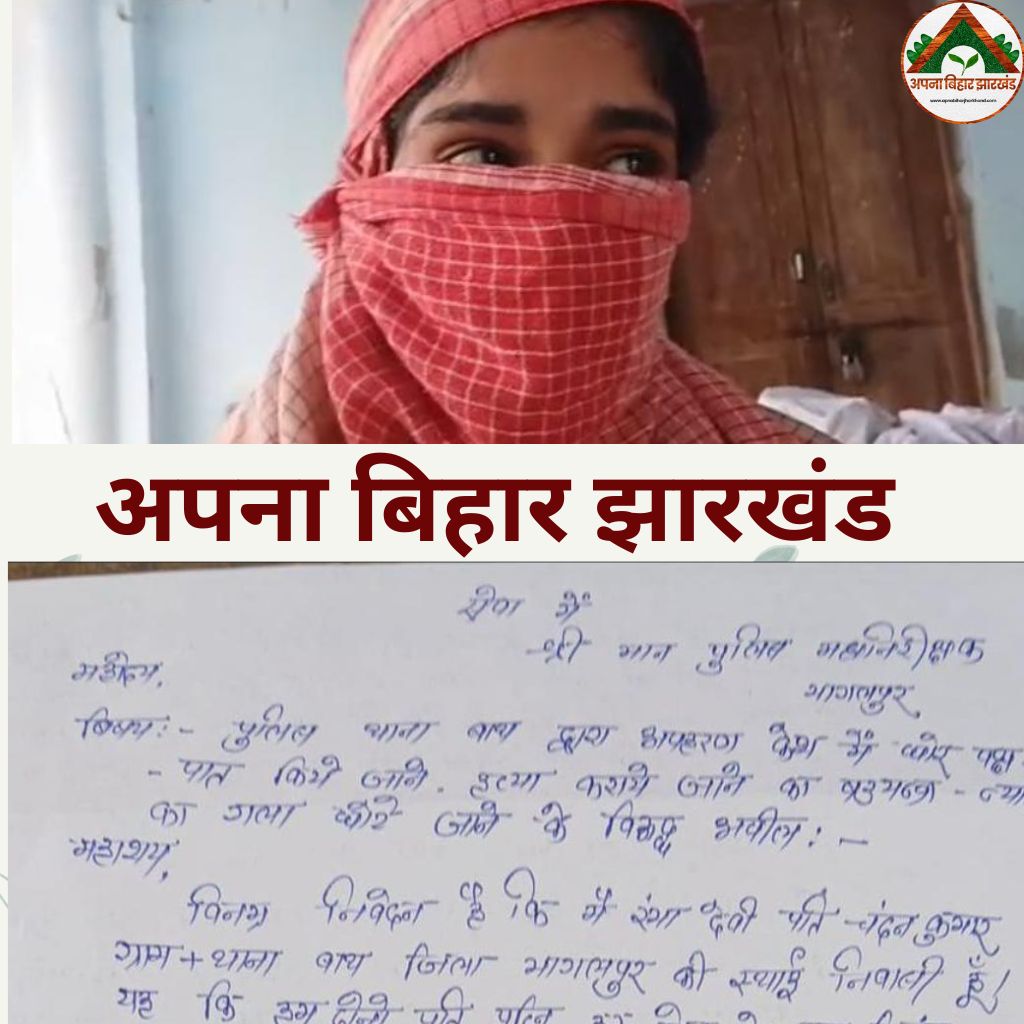 अपना बिहार झारखंड
www.apnabiharjharkhand.com
अपना बिहार झारखंड
सेवा में
श्री मान पुलिस महानिरीक्षक
महोदय,
भागलपुर
बिषय:- पुलिस थाना बाथ द्वारा अपहरण केश में घोर पक्ष
- पात किये जाने. हत्या कराये जाने का षडयन्त्र - न्या
का गला घोटे जाने के विरूद्ध अपील: -
महाशय,
विनम्र निवेदन है कि मैं रंभा देवी पति चंदन कुमार
ग्राम + थाना बाथ जिला भागलपुर की स्थाई निवासी हूँ।
यह कि हम दोनो पति पत्नि